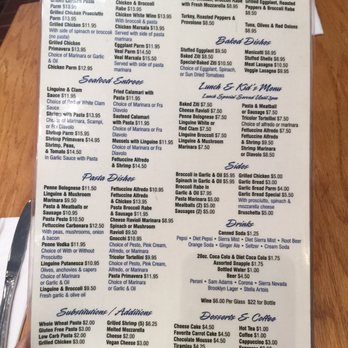 Grilled Chicken
Parm $13.95
Grilled Chicken $11.95
With spinach or broccoli
pasta
Grilled Chicken
Primavera $13.95
Choice of Marinara or Garlic
& Oil
Chicken Parm $12.95
Chicken & Broccoli
Rabe $13.95
Chicken Marinara $12.95
With broccoli & pasta
Chicken Marsala $15.95
Served with Mine pasta
Eggplant Parm $11.95
Veal Parm $14.95
Veal Marsala $16.95
With salad & bread
with Fresh Mozzarella $9.95
Turkey, Roasted Peppers &
Provolone $8.95
Tuna, Olives & Red Onions
$8.95
Seafood Entrees
Linguine & Clam
Sauce $11.95
Choice of Red or White Clam
Sauce
Shrimp with Pasta $13.95
Choice of Marinara, Scampi,
or Fra Diavolo
Shrimp Primavera $14.95
Shrimp, Peas,
& Tomato $14.50
in Garlic Sauce with Pasta
Fried Calamari with
Pasta $11.95
Choice of Marinara or Fra
Diavolo
Seafood Calamari with
Pasta $11.95
Choice of Marinara or Fra
Diavolo
Mussels with Linguine $11.95
Choice of Marinara or Fra
Diavolo
Fettuccine Alfredo
& Shrimp $14.50
Baked Dishes
Stuffed Eggplant $11.95
Baked Ziti $8.50
Baked Ziti Special $9.95
Choice of Eggplant, Spinach,
or Sun Dried Tomatoes
Manicotti $8.95
Stuffed Shells $8.95
Meat Lasagna $11.50
Veggie Lasagna $11.50
Lunch & Kid's Menu
Lunch Special Served Until 3pm
Baked Ziti $7.50
Cheese Ravioli $7.50
Penne Bolognese $7.50
Linguine White or
Red Clam $7.50
Linguine Broccoli
Garlic & Oil $7.50
Shrimp Marinara
or Garlic & Oil $8.50
Pasta & Meatballs
or Sausage $7.50
Tricolor Tortellini $7.50
Choice of alfredo or marinara
Fettuccine Alfredo
& Chicken $7.50
Fettuccine Alfredo
& Shrimp $8.50
Shrimp, Broccoli
Marinara or Garlic
& Oil $8.50
Pasta Dishes
Penne Bolognese $9.50
Linguine & Mushroom
Marinara $9.50
Pasta & Meatballs or
Sausage $9.50
Pasta Pesto $10.50
Fettuccine Carbonara $12.50
with peas, mushroom, onion &
bacon
Penne Vodka $11.95
Choice of With or Without
Prosciutto
Linguine Putanesca $10.95
Olives, anchovies & capers
Choice of Marinara
or Garlic & Oil
Linguine & Broccoli $9.50
Fresh garlic & olive oil
Fettuccine Alfredo $10.95
Fettuccine Alfredo
& Chicken $12.95
Pasta & Broccoli Rabe
& Sausage $11.95
Cheese Ravioli Marinara $9.95
Spinach or Mushroom
Ravioli $9.50
Gnocchi $10.95
Choice of Pesto, Pink Cream,
Alfredo, or Marinara
Tricolor Tortellini $10.95
Choice of Pesto, Pink Cream,
Alfredo, or Marinara
Pasta Primavera $11.95
Choice of Marinara
or Garlic & Oil
Sides
Broccoli in Garlic & Oil $5.50
Spinach in Garlic & Oil $5.50
Broccoli Rabe in
Garlic & Oil $7.95
Pasta & Marinara $5.50
Meatballs (2) $5
Sausage (2) $5
Grilled Chicken $5.00
Garlic Bread $3.00
Garlic Bread Parm $4.00
Garlic Bread Special $5.50
w/ mozzarella, spinach
or broccoli
Bruschetta $5.00
Drinks
Canned Soda $1.25
Pepsi - Diet Pepsi - Sierra Mist - Diet Sierra Mist - Root Beer
Orange Soda - Ginger Ale - Seltzer - Cream Soda
20oz. Coca Cola & Diet Coca Cola $1.75
Assorted Snapple $1.75
Bottled Water $1.00
Beer $4.50
Peroni - Sam Adams - Corona - Sierra Nevada
Brooklyn Lager - Stella Artois
Wine $6.00 Per Glass $22 for Bottle
Substitutions / Additions
Whole Wheat Penne $2.00
Gluten Free Penne $3.00
Low Carb Pasta $2.00
Grilled Chicken $3.00
Grilled Shrimp (5) $6.25
Melted Mozzarella
Cheese $2.00
Vegan Cheese $3.00
Desserts & Coffee
Cheese Cake $4.50
Favorite Carrot Cake $4.50
Chocolate Mousse $4.50
Tiramisu $4.75
Hot Tea $1.00
Coffee $1.00
Cappuccino $3.00
Espresso $2.00